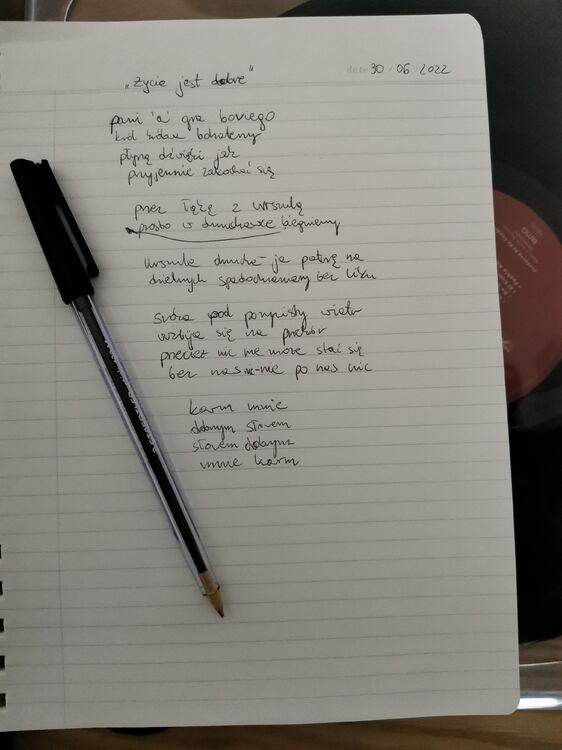 „Życie jest dobre"
date 30 / 06 / 2022
pani 'a' gra bowiego
król
płyną dźwięki jak
przyjemnie zakochać się
przez łąkę z urszulą
prosto w dmuchawce biegniemy
urszula dmucha - ja patrzę na
dzielnych spadochroniarzy bez liku
stóża pod porywisty wiatr
wzbija się na przekór
przecież nic nie może stać się
bez nas - nie po nas nic
karm mnie
dobrym słowem
słowem dobrym
mnie karm